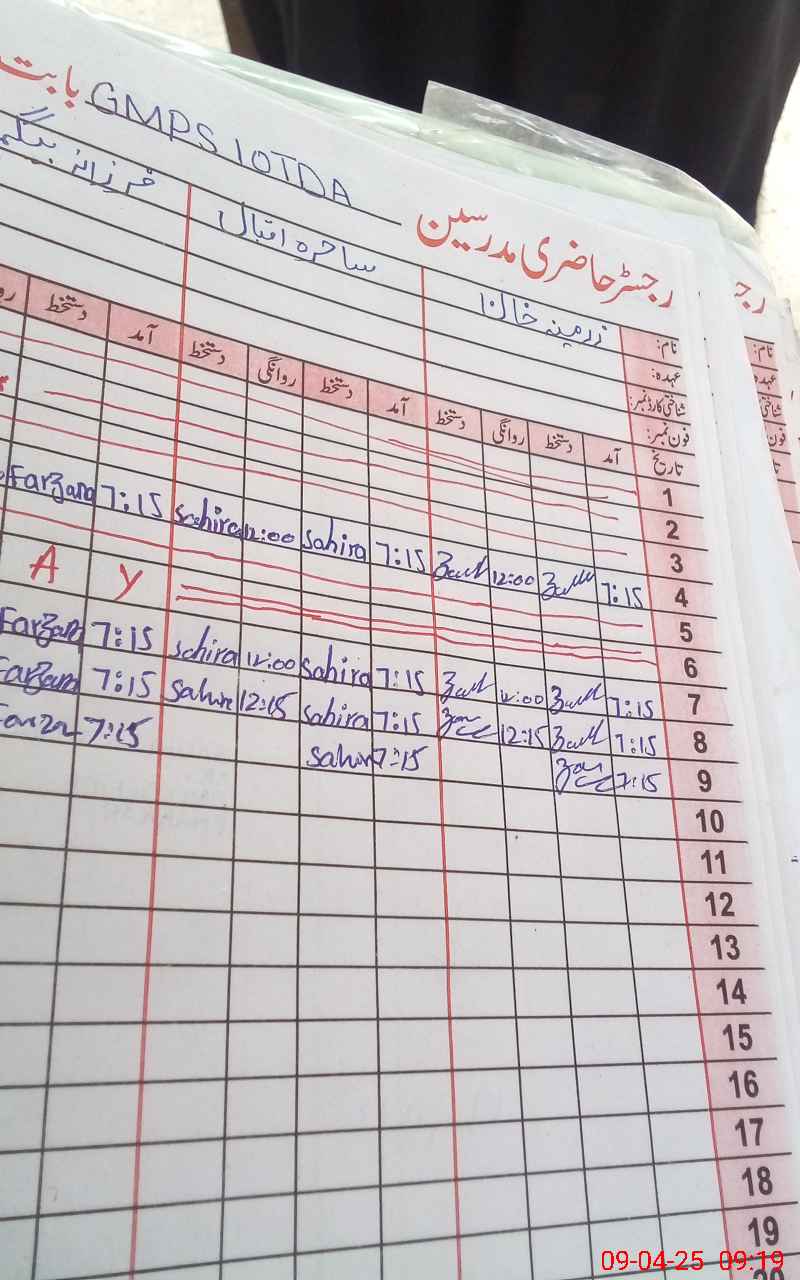 رجسٹر حاضری مدرسین GMPS 10TDA بابت
نام: زرمینہ خان ساحرہ اقبال فرزانہ بیگم
نام:
عہدہ:
عہدہ
شناختی کارڈ نمبر:
فون نمبر:
تاریخ آمد دستخط روانگی دستخط آمد دستخط روانگی دستخط آمد دستخط
1
2
3
4 7:15 12:00 7:15 Sahira 12:00 Sahira 7:15 Farzana
5
6 y A
7 7:15 12:00 7:15 Sahira 12:00 Sahira 7:15 Farzana
8 7:15 12:15 7:15 Sahira 12:15 Sahira 7:15 Farzana
9 7:15 7:15 Sahira 7:15 Farzana
10
11
12
13
14
15
16
17
18
19
09-04-25 09:19